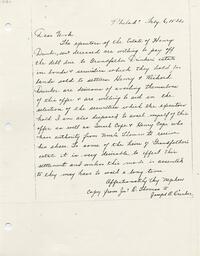 Philad. Feby 6, 1822
Dear Uncle
The executors of the Estate of Henry
Drinker are willing to pay off
the debt due to Grandfather Drinkers estate
in bonds & securities which they hold for
lands sold to settlers. Henry & Richard
Drinker are desirous of availing themselves
of this offer & are willing to aid in the
selection of the securities which the executors
hold. I am also disposed to avail myself of this
offer as well as Israel Cope & Henry Cope who
have authority from Uncle Thomas to receive
his share. To some of the heirs of Grandfathers
estate it is very desirable to effect this
settlement and unless this mode is assented
to they may have to wait a long time
Affectionately thy Nephew
Copy from Jos. D. Thomas to
Joseph D. Drinker